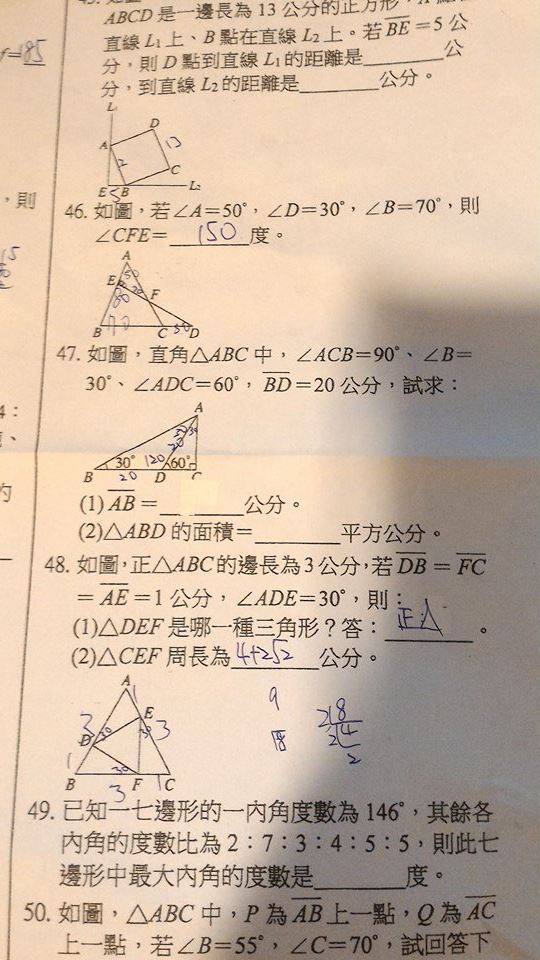 ABCD 是一邊長為 13 公分的正方形,
直線 L₁ 上、B 點在直線 L₂ 上。若 BE=5 公
f=185
分,則 D 點到直線 L₁ 的距離是______公
分,到直線 L₂ 的距離是______公分。
L₁
D
13
A
2
C
E 5 B L₂
,則
46. 如圖,若∠A=50°,∠D=30°,∠B=70°,則
∠CFE= 150 度。
A
50
E
80 20 F
B 70 C 30 D
47. 如圖,直角△ABC 中,∠ACB=90°、∠B=
30°、∠ADC=60°,BD=20 公分,試求:
A
30
20
30° 120 60°
B 20 D C
(1) AB=______公分。
(2)△ABD 的面積=______平方公分。
48. 如圖,正△ABC 的邊長為 3 公分,若 DB = FC
= AE =1 公分,∠ADE=30°,則:
(1)△DEF 是哪一種三角形?答: 正△ 。
(2)△CEF 周長為 4+2√2 公分。
A
1
E
3 D 30 30 3
1 30
B F 1 C
3
9
18
2 8
2 4
2
49. 已知一七邊形的一內角度數為 146°,其餘各
內角的度數比為 2:7:3:4:5:5,則此七
邊形中最大內角的度數是______度。
50. 如圖,△ABC 中,P 為 AB 上一點,Q 為 AC
上一點,若∠B=55°,∠C=70°,試回答下